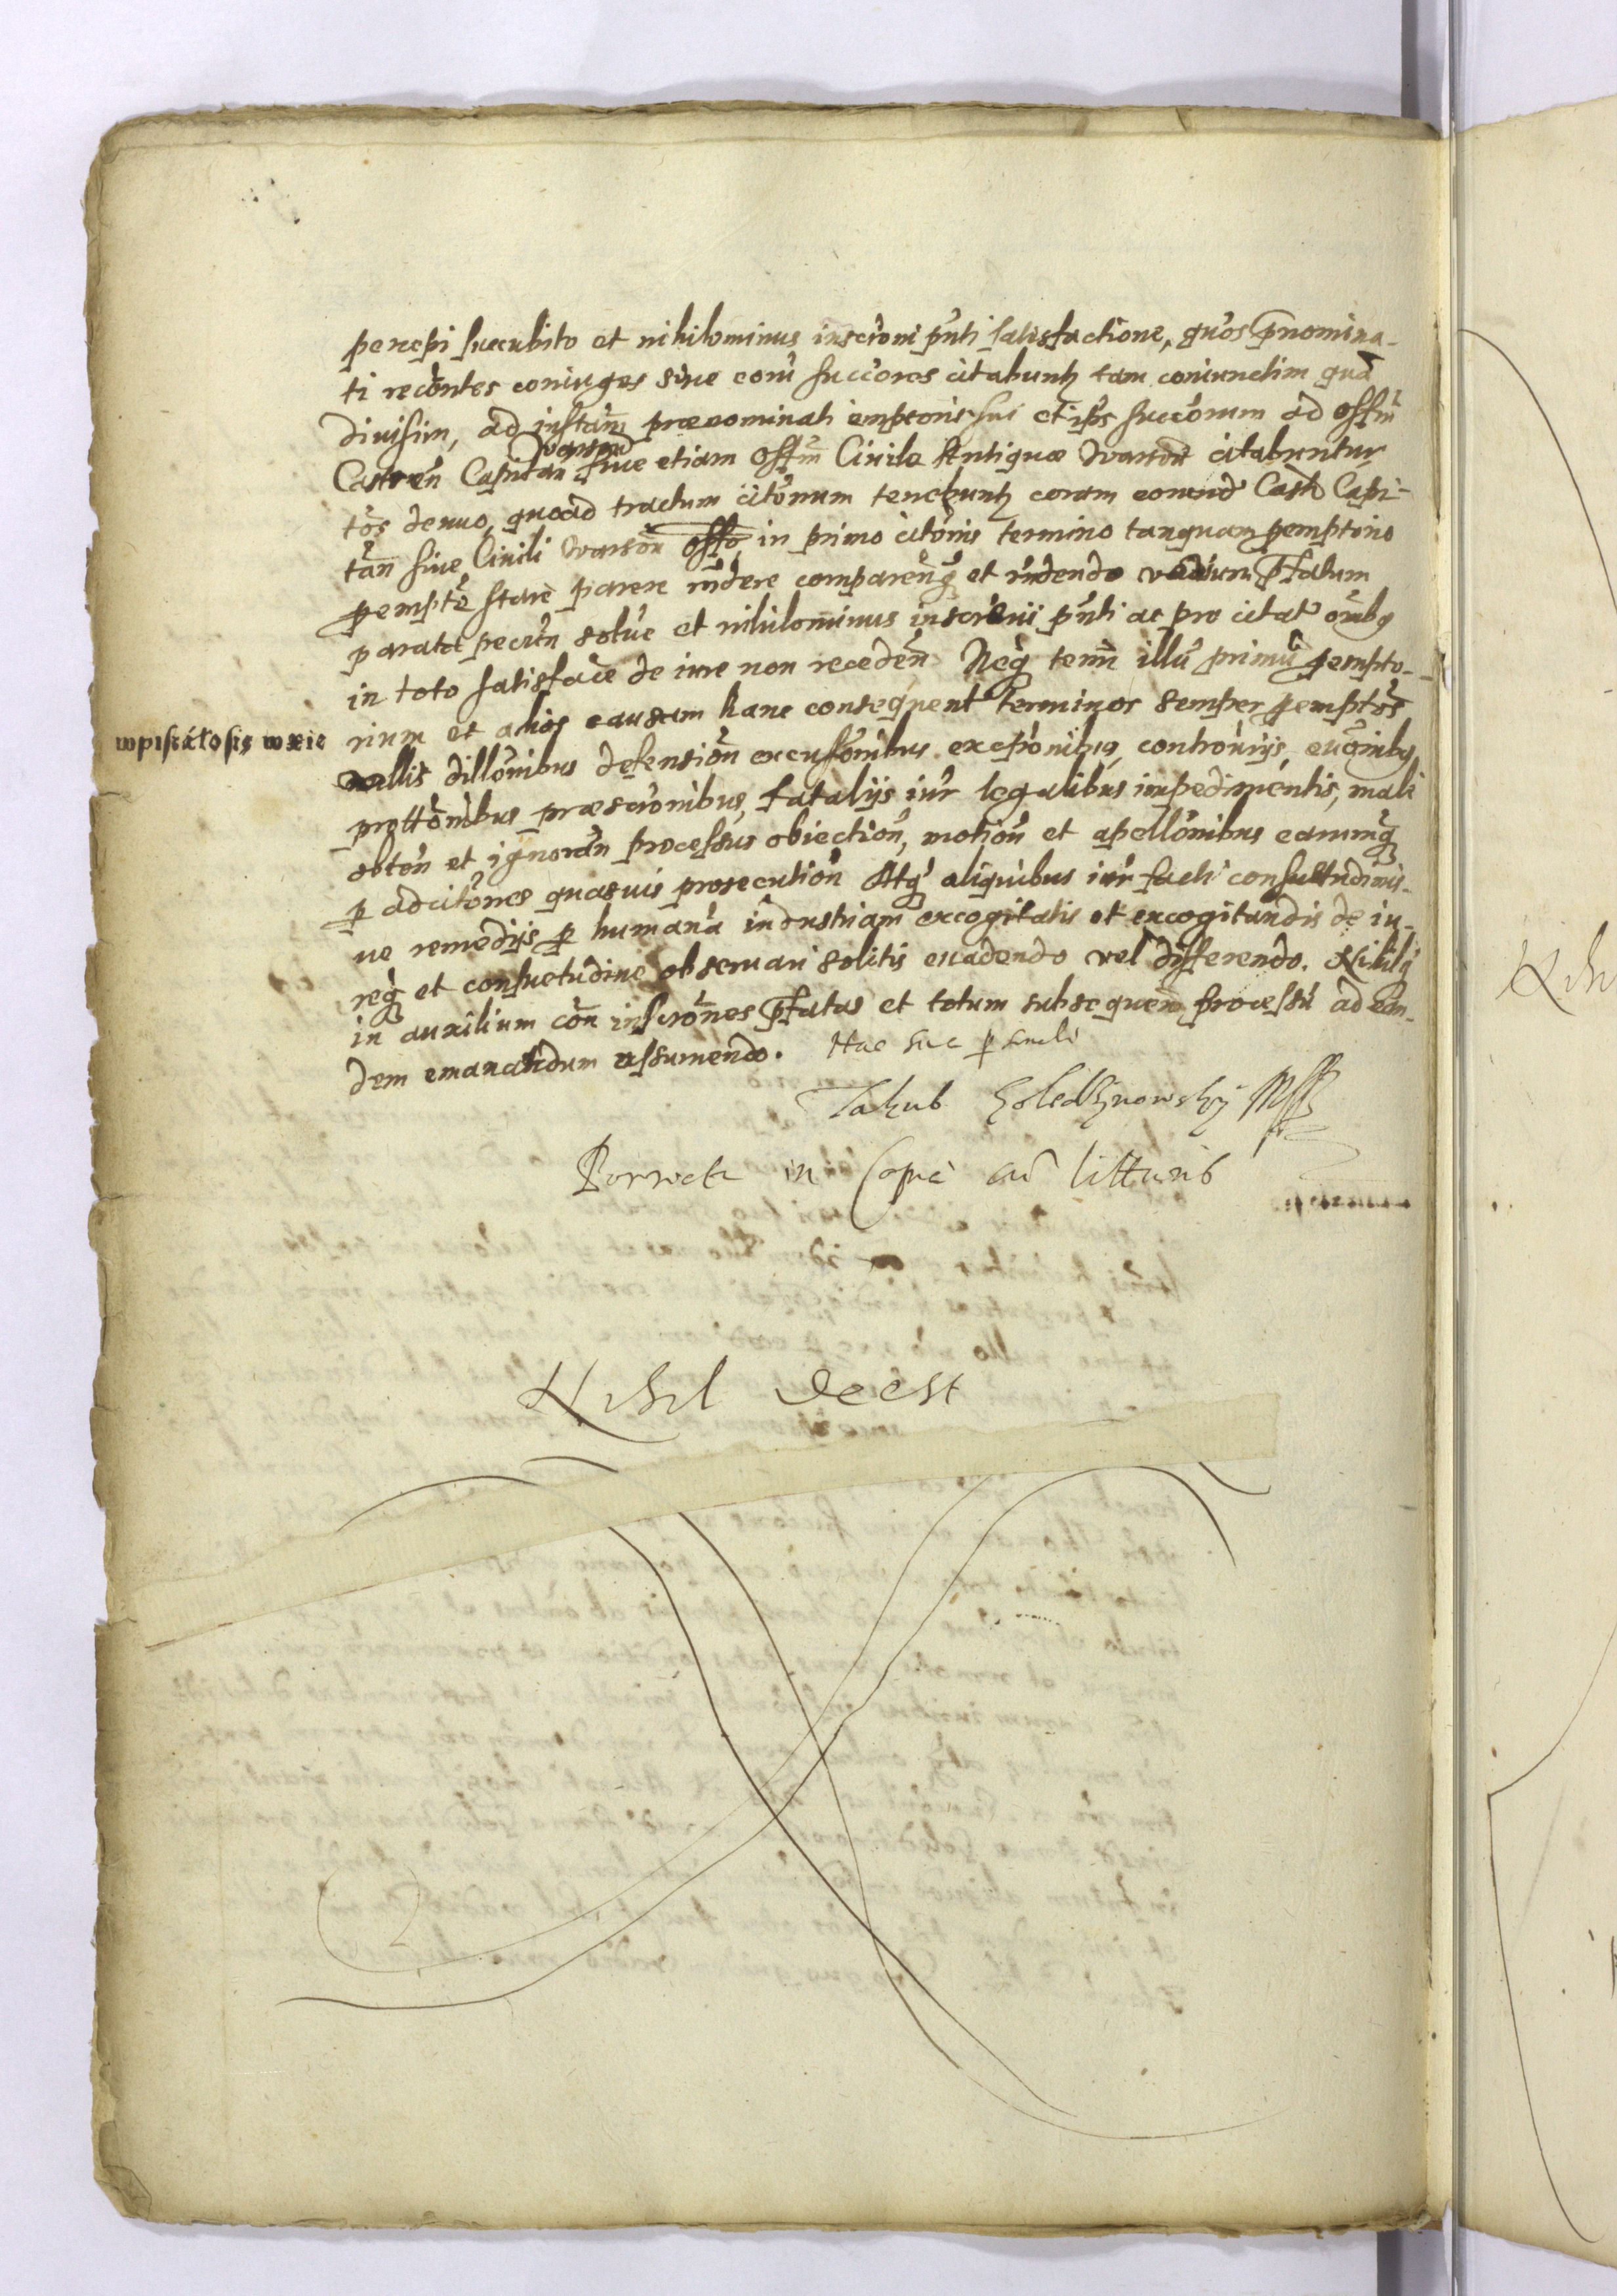 percepi succubito et nihilominus inscr̃oni p̃nti satisfactione, quos p̃nomina-
ti recõntes coniuges siue eorũ succ̃ores citabuntʒ tam coniunctim quã
diuisim, ad instan̄ prænominati emptoris sui et ip̃s succ̃orum ad offm̃
Warsaᵈ
Castren̄ Capitan̄ siue etiam Offm̃ Ciuile Antiquæ Warsou citabuntur
tõs denuo, quoad tractum citõnum tenebuntʒ coram eorund̃ Castr̃ Capi-
tan̄ siue Ciuili Warsou̅ offo in primo citõnis termino tanquam p̱emptorio
p̱empte stare parere rñdere comparen̄q̃ et rñdendo vadium p̄fatum
parata pecun̄ solue et nihilominus inscr̃oni p̃nti ac pro citat̃ omibꝫ
in toto satisface de iure non receden̄ Neq̃ term̃ illũ primũ p̱empto-
rium et alios causam hanc consequent terminos semper p̱emptõs
wpisáłosię wxie
nullis dill̃onibus defension̄ excus̃onibus excep̃onibꝫ, controũijs, euõnibꝫ
prott̃onibus præscr̃onibus, fatalijs iur̃ legalibus impedimentis, male
obten̄ et ignoran̄ processus obiection̄, motion̄ et apell̃onibus earumq̃
p̱ adcit̃ones quasuis prosecution̄ Atq̃ aliquibus iur̃ facti consuetudinis-
ue remedijs p̱ humanã industriam excogitatis et excogitandis de iu-
req̃ et consuetudine obseruari solitis euadendo vel differendo. Nihilq̃
in auxilium cõn inscr̃ones p̄fatas et totum subsequen̄ processũ ad ean-
dem emanandum assumendo.
Jakub
in Copia cũ litturis
Nihil deest